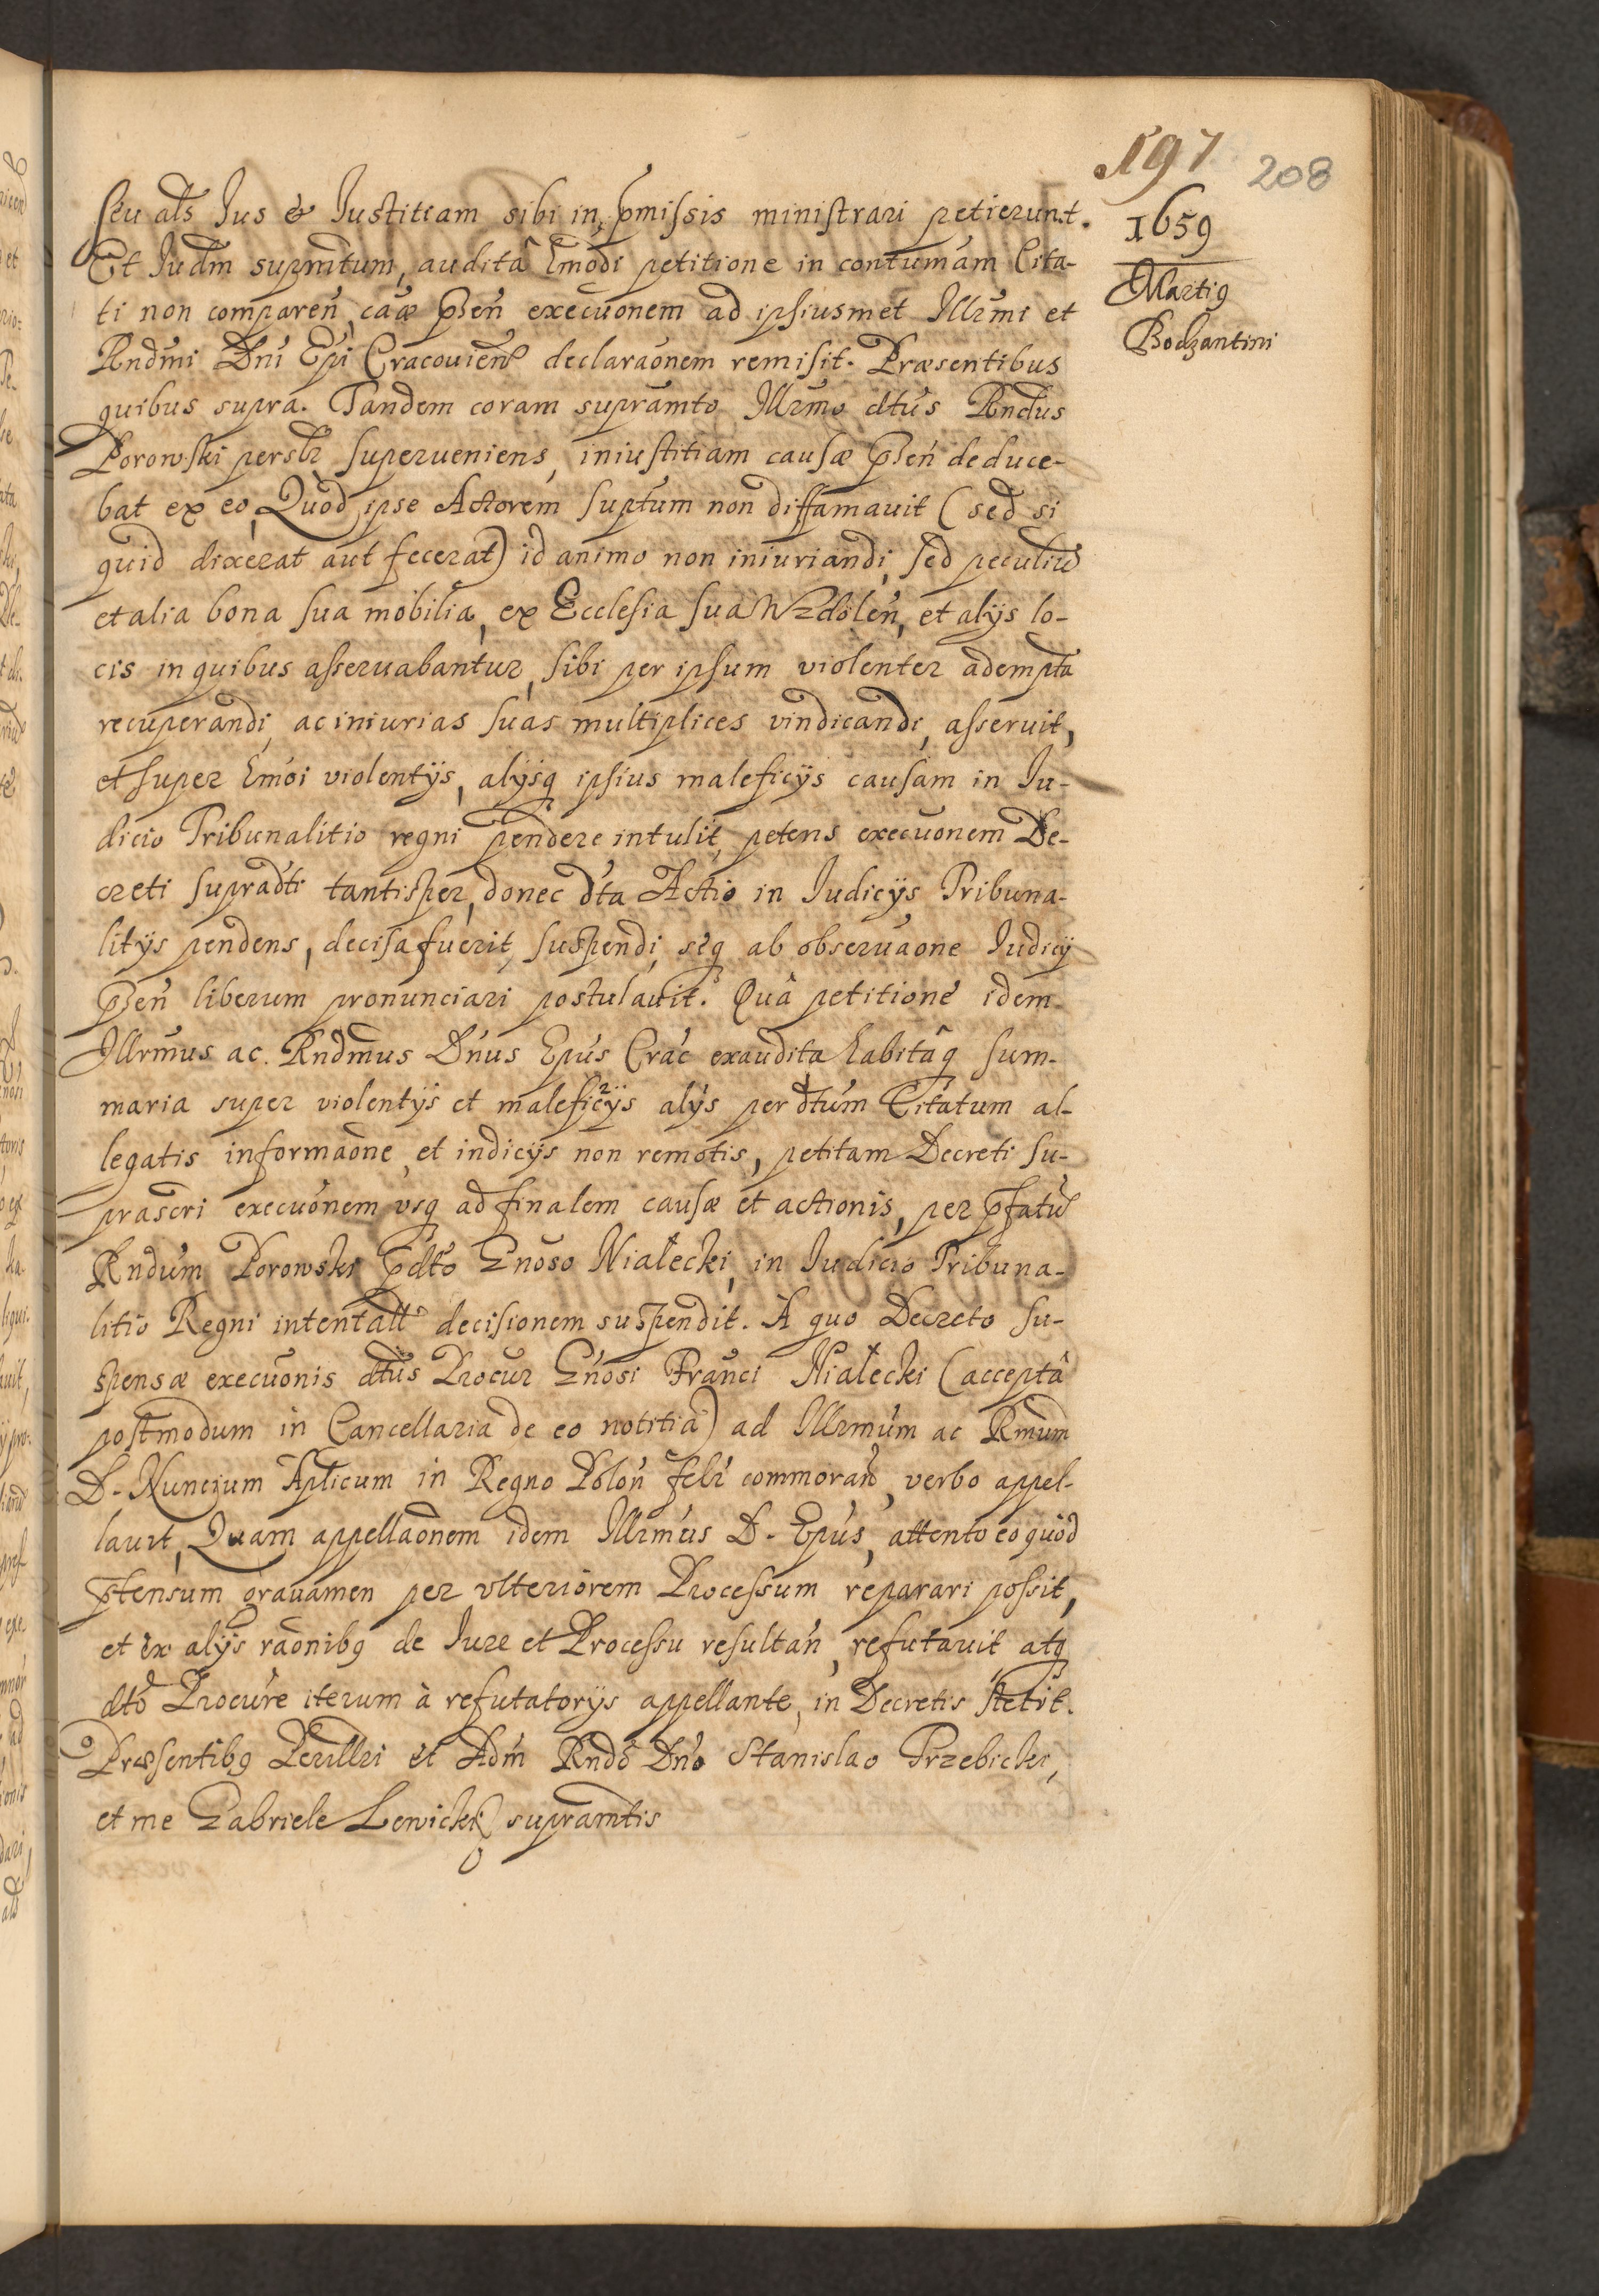 197 208
1659
Martiq
Bodzantini
seu als Ius & Iustitiam sibi in pmissis ministrari petierunt.
Et Iudm supmtum, auditâ hmodi petitione in contumam Cita-
ti non comparen, cae pñsen execuonem ad ipsiusmet Illrmi et
Rndmi Dni Epi Cracouien declaraonem remisit. Præsentibus
quibus supra. Tandem coram supramto Illrmo dtus Rndus
Porowski persłr superueniens, iniustitiam causæ pñsen deduce-
bat ex eo, Quòd ipse Actorem suptum non diffamauit (sed si
quid dixerat aut fecerat) id animo non iniuriandi, sed peculiũ
et alia bona sua mobilia, ex Ecclesia sua Wzdolen, et alijs lo-
cis in quibus asseruabantur, sibi per ipsum violenter adempta
recuperandi, ac iniurias suas multiplices vindicandi, asseruit,
et super hmoi violentijs, alijsq ipsius maleficijs causam in Iu-
dicio Tribunalitio regni pendere intulit, petens execuonem De-
creti supradti tantisper, donec dta Actio in Iudicijs Tribuna-
litijs pendens, decisa fuerit, suspendi, seq ab obseruaone Iudicij
pñsen liberum pronunciari postulauit. Quâ petitione idem
Illrmus ac Rndmus Dnus Epus Crac exaudita habitâq sum-
maria super violentijs et maleficijs alijs per dtum Citatum al-
legatis informaone, et indicijs non remotis, petitam Decreti su-
prascri execuonem vsq ad finalem causæ et actionis, per pfatũ
Rndum Porowski pdto Gnoso Niałecki, in Iudicio Tribuna-
litio Regni intentatt decisionem suspendit. A quo Decreto su-
spensæ execuonis dtus Procur Gnosi Franci Niałecki (acceptâ
postmodum in Cancellaria de eo notitiâ) ad Illrmum ac Rmum
D. Nuncium Aplicum in Regno Polon felr commoran, verbo appel-
lauit, Quam appellaonem idem Illrmus D. Epus, attento eo quòd
ptensum grauamen per vlteriorem Processum reparari possit,
et ex alijs raonibq de Iure et Processu resultan, refutauit atq
dto Procure iterum à refutatorijs appellante, in Decretis stetit.
Præsentibq Perillri et Adm Rndo Dno Stanislao Trzebicki,
et me Gabriele Lewicki supramtis